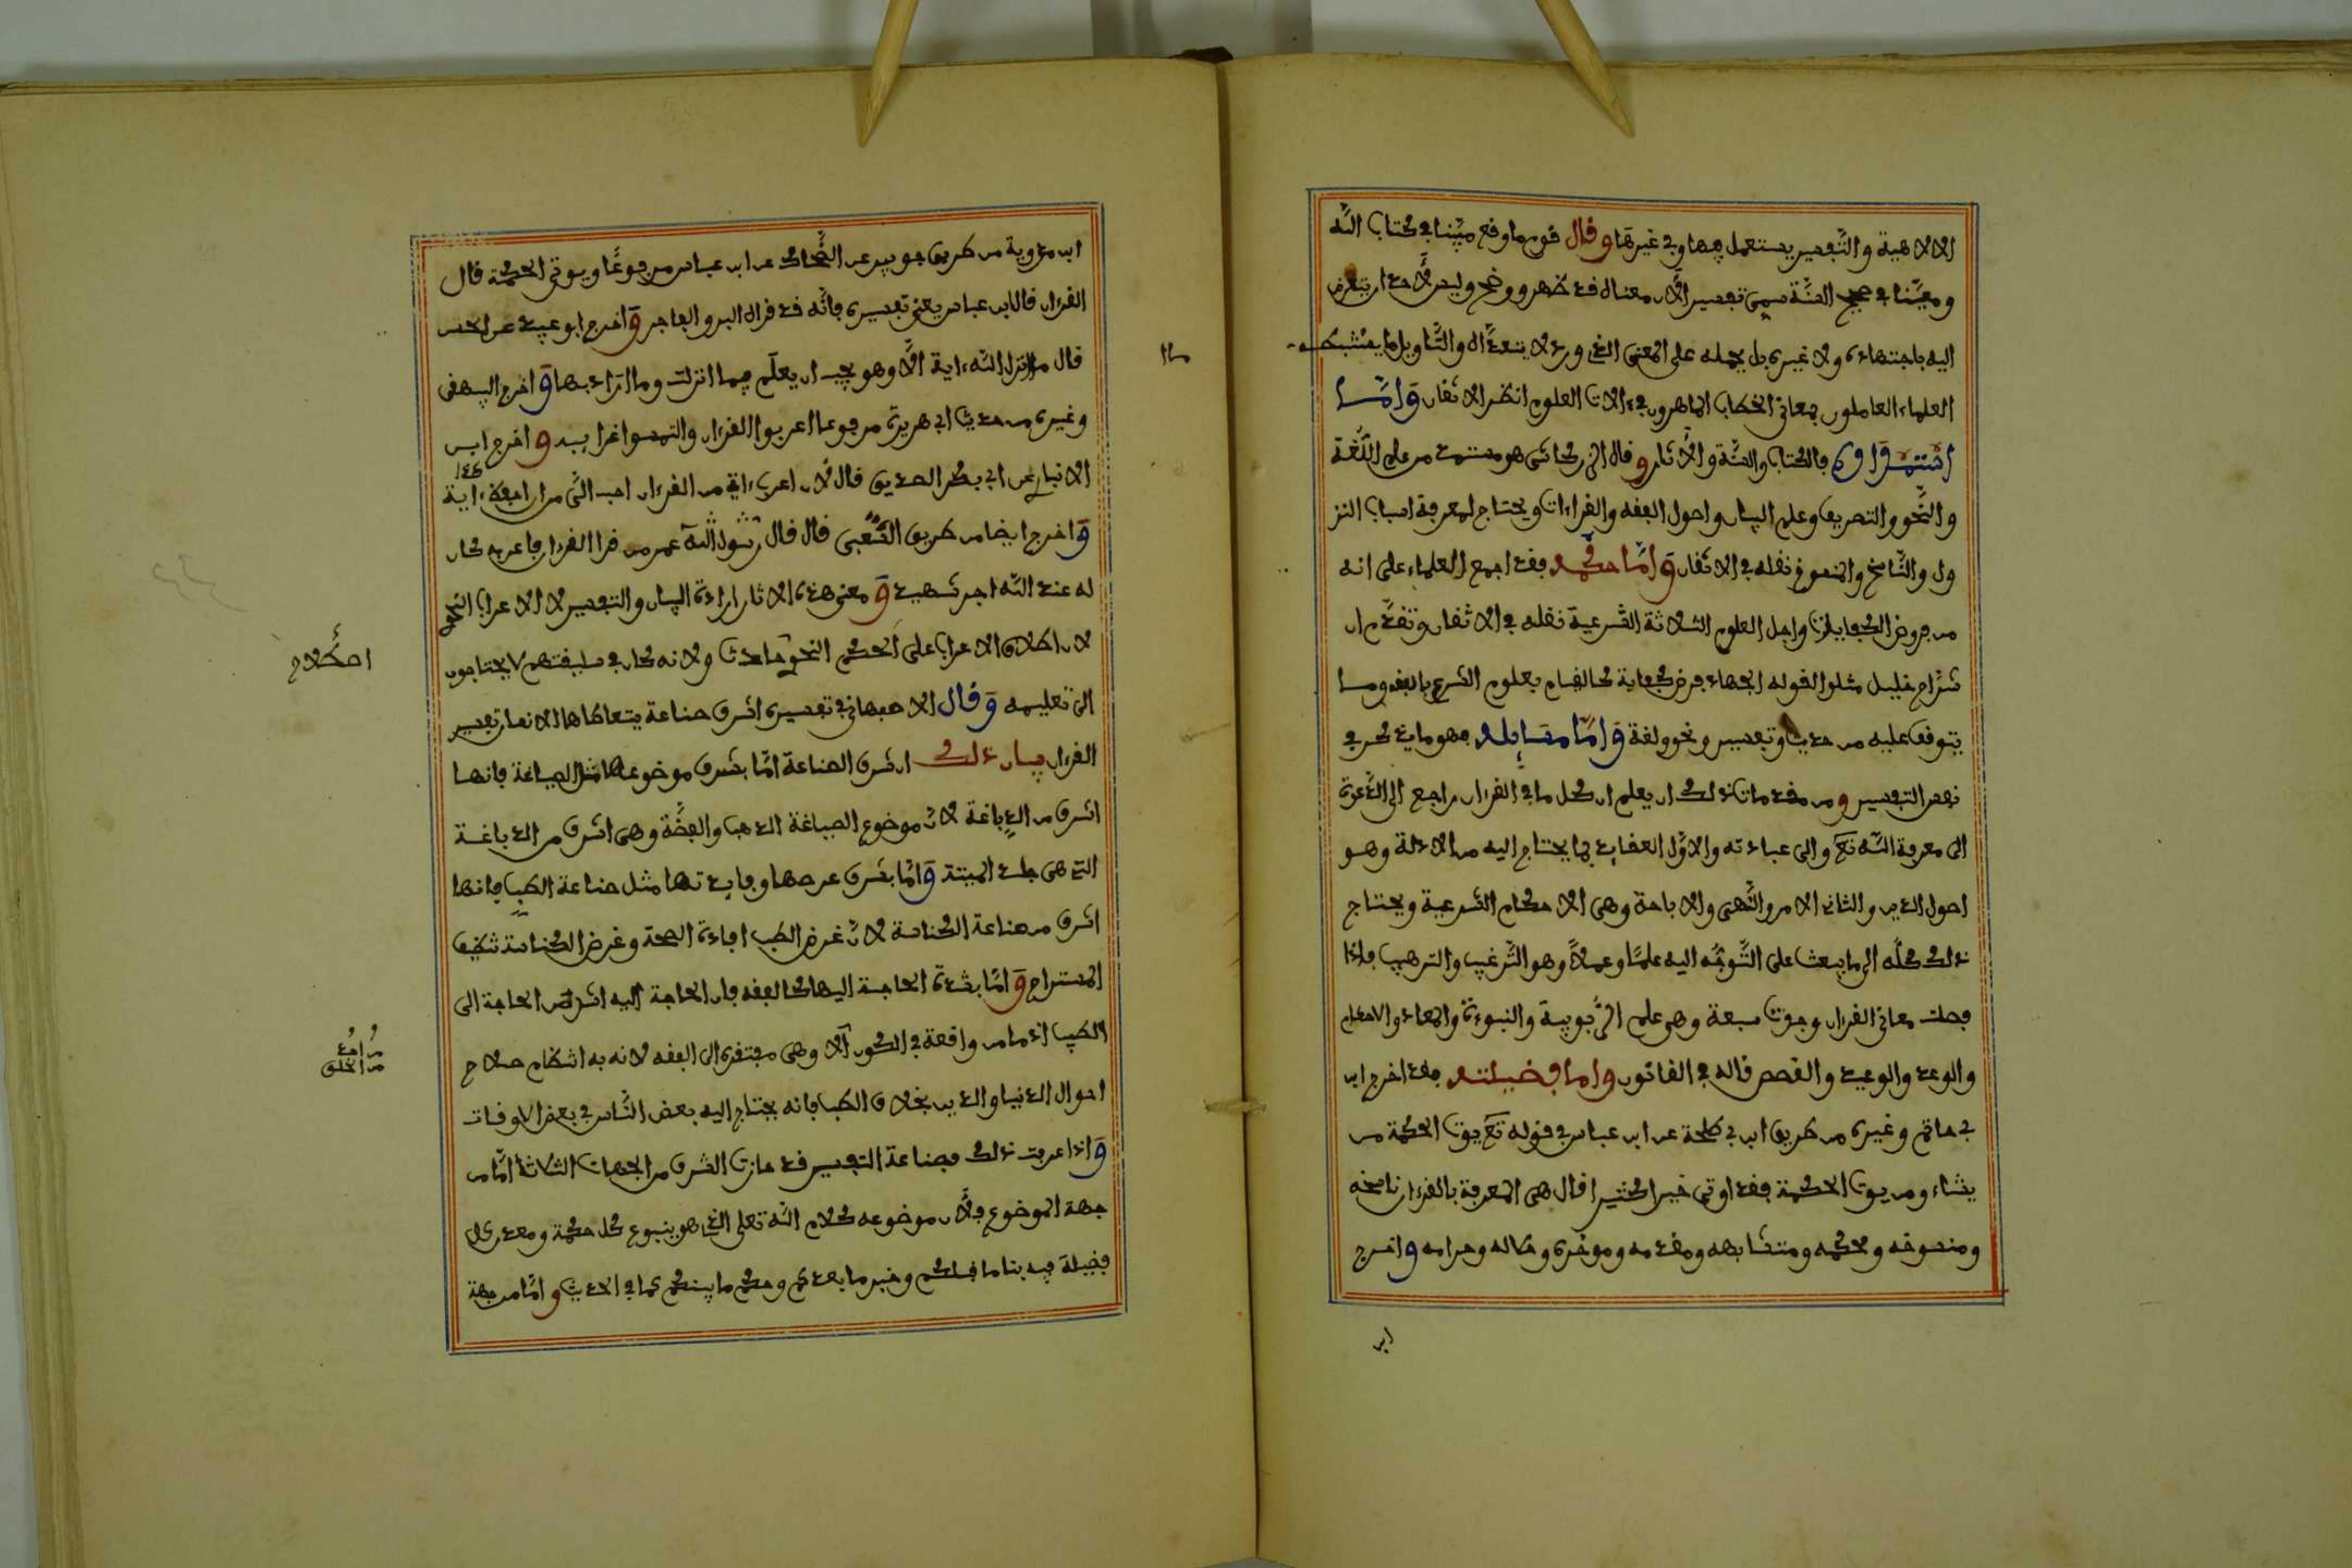 الالاهية والتفسير يستعمل فيها وفي غيرها وقال قوم ما وقع مبينا في كتاب الله
ومعينا في صحيح السنة سمي تفسيرا لأن معناه قد ظهر ووضح وليس لأحد ان يتعرض
اليه باجتهاد ولا غيره بل يحمله على المعنى الذي ورد لا يتعداه والتأويل ما يستنبطه
العلماء العاملون بمعاني الخطاب الماهرون في ءالات العلوم انظر الاتقان وأما
استمداده فالكتاب والسنة والآثار وقال الزركشي هو مستمد من علم اللغة
والنحو والتصريف وعلم البيان واصول الفقه والقراءات ويحتاج لمعرفة اسباب النز
ول والناسخ والمنسوخ نقله في الاتقان وأما حكمه فقد اجمع العلماء على انه
من فروض الكفايات واجل العلوم الثلاثة الشرعية نقله في الاتقان وتقدم ان
شراح خليل مثلوا لقوله الجهاد فرض كفاية كالقيام بعلوم الشرع بالفقه وما
يتوقف عليه من حديث وتفسير ونحو ولغة وأما مسايله فهو ما يذكر في
نفس التفسير ومن مقدمات ذلك ان يعلم ان كل ما في القرءان راجع الى الدعوة
الى معرفة الله تع والى عبادته والاول العقايد بما يحتاج اليه من الادلة وهو
اصول الدين والثاني الامر والنهي والاباحة وهي الاحكام الشرعية ويحتاج
ذلك كله الى ما يبعث على التوجه اليه علما وعملا وهو الترغيب والترهيب فإذا
فصلت معاني القرءان وجدت سبعة وهي علم الربوبية والنبوءة والمعاد والاحكام
والوعد والوعيد والقصص قاله في القانون وأما فضيلته فقد اخرج ابن
ابي حاتم وغيره من طريق ابن ابي طلحة عن ابن عباس في قوله تع يوت الحكمة من
يشاء ومن يوت الحكمة فقد اوتي خيرا كثيرا قال هي المعرفة بالقرءان ناسخه
ومنسوخه ومحكمه ومتشابهه ومقدمه ومؤخره وحلاله وحرامه واخرج
ابن
ابن مردوية من طريق جويبر عن الضحاك عن ابن عباس مرفوعا ويوتي الحكمة قال
القرءان قال ابن عباس يعني تفسيره فإنه قد قراه البر والفاجر واخرج ابو عبيد عن الحسن
قال ما انزل الله ءاية الا وهو يحب ان يعلم فيما انزلت وما اراد بها واخرج البيهقي
وغيره من حديث ابي هريرة مرفوعا اعربوا القرءان والتمسوا غرايبه واخرج ابن
الانباري عن ابي بكر الصديق قال لأن اعرب ءاية من القرءان احب الي من ان احفظ ءاية
واخرج ايضا من طريق الشعبي قال قال عمر من قرا القرءان فاعربه كان
له عند الله اجر شهيد ومعنى هذه الاثار ارادة البيان والتفسير لا الاعراب النحو
لان اطلاق الاعراب على الحكم النحوي حادث ولانه كان في سليقتهم لا يحتاجون
الى تعليمه وقال الاصبهاني في تفسيره اشرف صناعة يتعاطاها الانسان تفسير
القرءان بيان ذلك ان شرف الصناعة اما بشرف موضوعها مثل الصياغة فانها
اشرف من الدباغة لأن موضوع الصياغة الذهب والفضة وهي اشرف من الدباغة
التي هي جلد الميتة واما بشرف غرضها وفايدتها مثل صناعة الطب فانها
اشرف من صناعة الكناسة لأن غرض الطب افادة الصحة وغرض الكناسة تنظيف
المستراح واما بشدة الحاجة اليها كالفقه فان الحاجة اليه اشد من الحاجة الى
الطب اذ ما من واقعة في الكون الا وهي مفتقرة الى الفقه لانه به انتظام صلاح
احوال الدنيا والدين بخلاف الطب فانه يحتاج اليه بعض الناس في بعض الاوقات
واذا عرفت ذلك فصناعة التفسير قد حازت الشرف من الجهات الثلاث اما من
جهة الموضوع فلأن موضوعه كلام الله تعلى الذي هو ينبوع كل حكمة ومعدن كل
فضيلة فيه بنا ما قبلكم وخبر ما بعدكم وحكم ما بينكم كما في الحديث واما من جهة
من احد
من الخلق